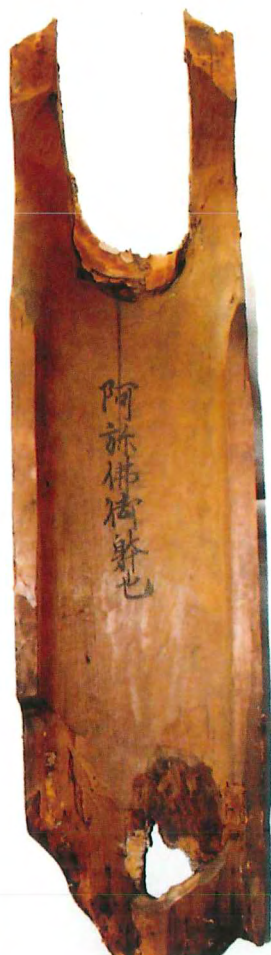 阿弥佛御躰也